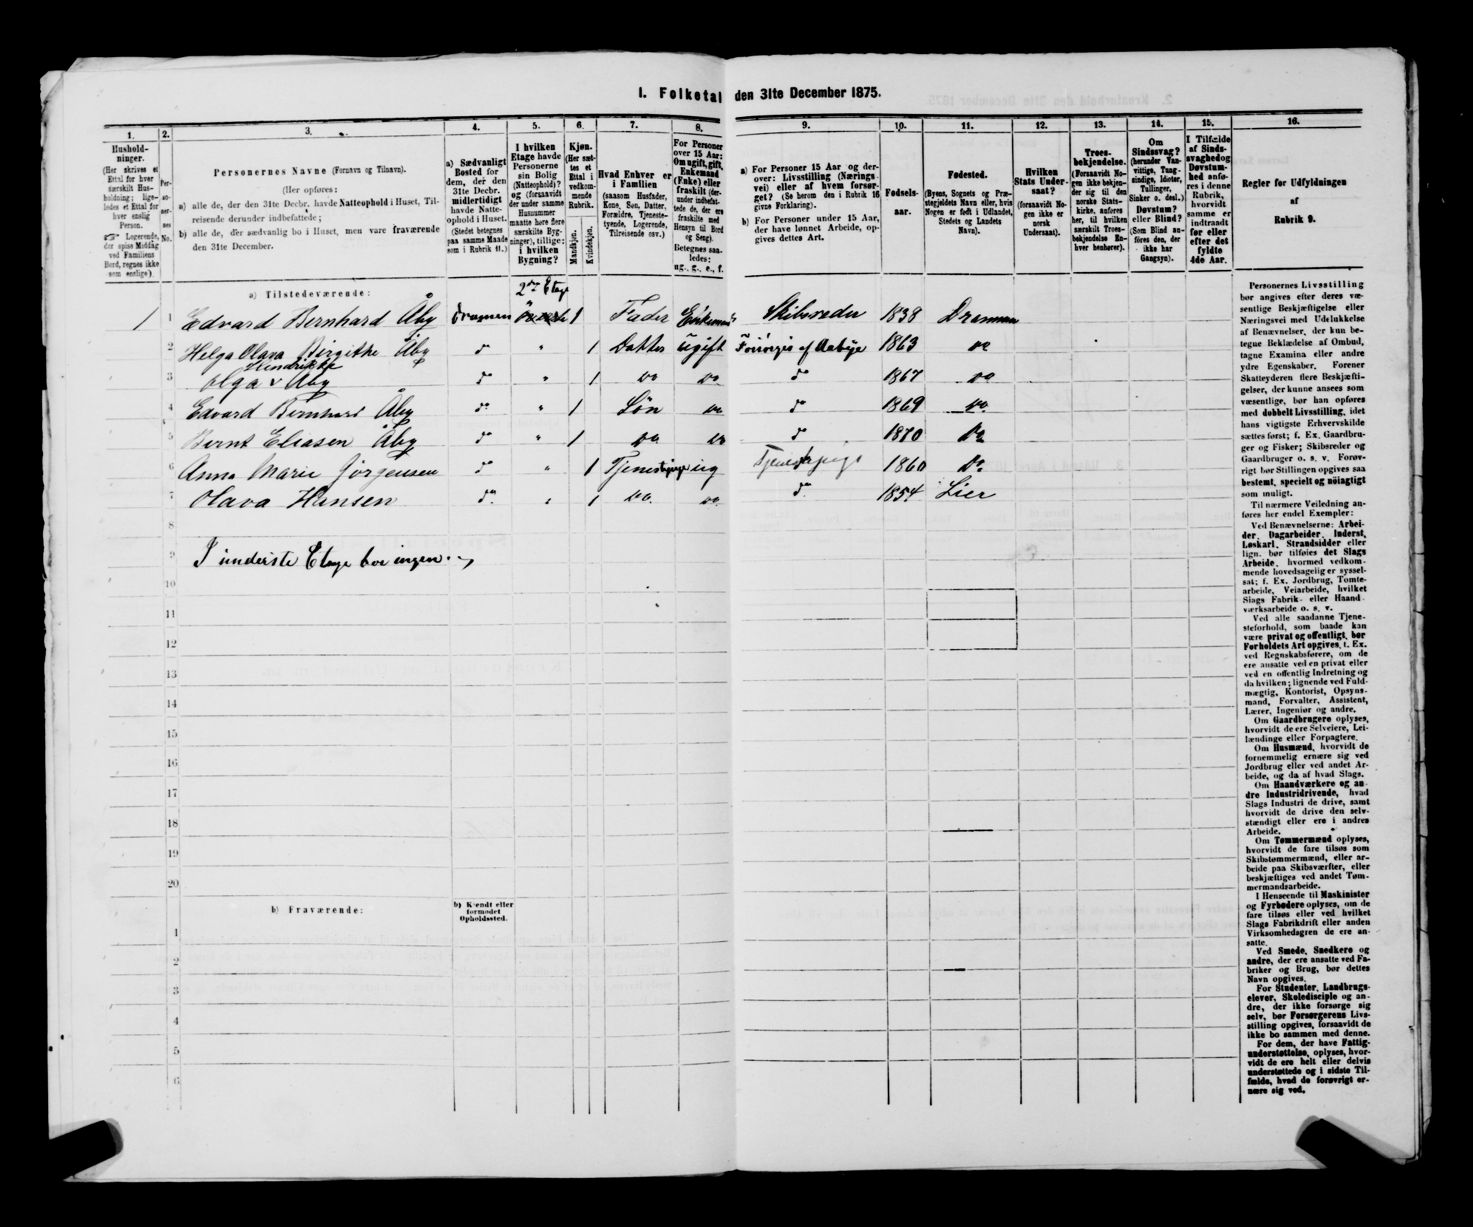 I. Folketal den 31te December 1875.
1. 2. 3. 4. 5. 6. 7. 8. 9. 10. 11. 12. 13. 14. 15. 16.
Hushold-
ninger.
(Her skrives et
Ettal for hver
særskilt Hus-
holdning; lige-
ledes et Ettal for
hver enslig
Person.
☞ Logerende,
der spise Middag
ved Familiens
Bord, regnes ikke
som enslige).
Per-
so-
ner-
nes
No.
Personernes Navne (Fornavn og Tilnavn).
(Her opføres:
a) alle de, der den 31te Decbr. havde Natteophold i Huset, Til-
reisende derunder indbefattede;
b) alle de, der sædvanlig bo i Huset, men vare fraværende
den 31te December.
a) Sædvanligt
Bosted for
dem, der den
31te Decbr.
midlertidigt
havde Natte-
ophold i Huset.
(Stedet betegnes
paa samme Maade
som i Rubrik 11.)
I hvilken
Etage havde
Personerne
sin Bolig
(Natteophold)?
og (forsaavidt
der under samme
Husnummer
maatte høre flere
særskilte Byg-
ninger), tillige:
i hvilken
Bygning?
Kjøn.
(Her sæt-
tes et
Ettal i
vedkom-
mende
Rubrik.
Mandkjøn.
Kvindekjøn.
Hvad Enhver er
i Familien
(saasom Husfader,
Kone, Søn, Datter,
Forældre, Tjeneste-
tyende, Logerende,
Tilreisende osv.)
For Personer
over 15 Aar:
Om ugift, gift,
Enkemand
(Enke) eller
fraskilt (der-
under indbefat-
tede de, der ere
fraskilte med
Hensyn til Bord
og Seng).
Betegnes saa-
ledes:
ug., g., e., f.
a) For Personer 15 Aar og der-
over: Livsstilling (Nærings-
vei) eller af hvem forsør-
get? (Se herom den i Rubrik 16
givne Forklaring).
b) For Personer under 15 Aar,
der have lønnet Arbeide, op-
gives dettes Art.
Fødsels-
aar.
Fødested.
(Byens, Sognets og Præ-
stegjeldets Navn eller, hvis
Nogen er født i Udlandet,
Stedets og Landets
Navn).
Hvilken
Stats Under-
saat?
(forsaavidt No-
gen ikke er
norsk
Undersaat).
Troes-
bekjendelse.
(Forsaavidt No-
gen ikke bekjen-
der sig til den
norske Stats-
kirke, anføres
her, til hvilken
særskilt Troes-
bekjendelse En-
hver henhører).
Om
Sindssvag?
(herunder Van-
vittige, Tung-
sindige, Idioter,
Tullinger,
Sinker o. desl.)
Døvstum?
eller Blind?
(Som Blind an-
føres den, der
ikke har
Gangsyn).
I Tilfælde
af Sinds-
svaghed og
Døvstum-
hed anfø-
res i denne
Rubrik,
hvorvidt
samme er
indtraadt
før eller
efter det
fyldte
4de Aar.
Regler for Udfyldningen
af
Rubrik 9.
a) Tilstedeværende:
2den Etage
1 1 Edvard Bernhard Åby Dramen 1 Fader Enkemand Skibsreder 1838 Drammen
2 Helga Olava Birgitke Åby do " 1 Datter ugift Forsørges af Aabye 1863 do
Hendrikke
3 Olga v Åby do " 1 do do do 1867 do
4 Edvard Bernhard Åby do " 1 Søn do do 1869 do
5 Bernt Eliasen Åby do " 1 do do do 1870 do
6 Anna Marie Jörgensen do " 1 Tjenestepige ug Tjenestepige 1860 do
7 Olava Hansen do " 1 do do do 1854 Lier
8
9 I underste Etage boe ingen.
10
11
12
13
14
15
16
17
18
19
20
b) Fraværende:
b) Kjendt eller
formodet
Opholdssted.
1
2
3
4
5
6
Personernes Livsstilling
bør angives efter deres væ-
sentlige Beskjæftigelse eller
Næringsvei med Udelukkelse
af Benævnelser, der kun be-
tegne Beklædelse af Ombud,
tagne Examina eller andre
ydre Egenskaber. Forener
Skatteyderen flere Beskjæfti-
gelser, der kunne ansees som
væsentlige, bør han opføres
med dobbelt Livsstilling, idet
hans vigtigste Erhvervskilde
sættes først; f. Ex. Gaardbru-
ger og Fisker; Skibsreder og
Gaardbruger o. s. v. Forøv-
rigt bør Stillingen opgives saa
bestemt, specielt og nøiagtigt
som muligt.
Til nærmere Veiledning an-
føres her endel Exempler:
Ved Benævnelserne: Arbei-
der, Dagarbeider, Inderst,
Løskarl, Strandsidder eller
lign. bør tilføies det Slags
Arbeide, hvormed vedkom-
mende hovedsagelig er syssel-
sat; f. Ex. Jordbrug, Tomte-
arbeide, Veiarbeide, hvilket
Slags Fabrik- eller Haand-
værksarbeide o. s. v.
Ved alle saadanne Tjene-
steforhold, som baade kan
være privat og offentligt, bør
Forholdets Art opgives, t. Ex.
ved Regnskabsførere, om de
ere ansatte ved en privat eller
ved en offentlig Indretning og
da hvilken; lignende ved Fuld-
mægtig, Kontorist, Opsyns-
mand, Forvalter, Assistent,
Lærer, Ingeniør og andre.
Om Gaardbrugere oplyses,
hvorvidt de ere Selveiere, Lei-
lændinge eller Forpagtere.
Om Husmænd, hvorvidt de
fornemmelig ernære sig ved
Jordbrug eller ved andet Ar-
beide, og da af hvad Slags.
Om Haandværkere og an-
dre Industridrivende, hvad
Slags Industri de drive, samt
hvorvidt de drive den selv-
stændigt eller ere i andres
Arbeide.
Om Tømmermænd oplyses,
hvorvidt de fare tilsøs som
Skibstømmermænd, eller ar-
beide paa Skibsværfter, eller
beskjæftiges ved andet Tøm-
mermandsarbeide.
I Henseende til Maskinister
og Fyrbødere oplyses, om de
fare tilsøs eller ved hvilket
Slags Fabrikdrift eller anden
Virksomhedsgren de ere an-
satte.
Ved Smede, Snedkere og
andre, der ere ansatte ved Fa-
briker og Brug, bør dettes
Navn opgives.
For Studenter, Landbrugs-
elever, Skoledisciple og an-
dre, der ikke forsørge sig
selv, bør Forsørgerens Livs-
stilling opgives, forsaavidt de
ikke bo sammen med denne.
For dem, der have Fattig-
understøttelse, oplyses, hvor-
vidt de ere helt eller delvis
understøttede og i sidste Til-
fælde, hvad de forøvrigt er-
nære sig ved.